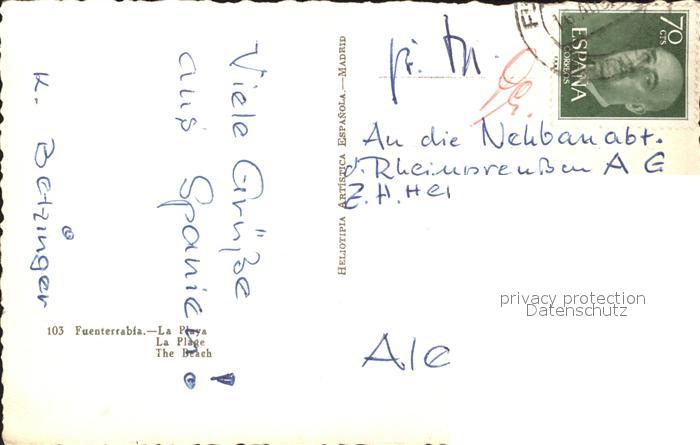 Viele Grüße
aus Spanien!
K. Betzinger
103 Fuenterrabía.—La Playa
La Plage
The Beach
HELIOTIPIA ARTÍSTICA ESPAÑOLA.—MADRID
70
CTS
ESPAÑA
CORREOS
An die Nebbauabt.
d. Rheinpreußen A G
Z.H. He
privacy protection
Datenschutz